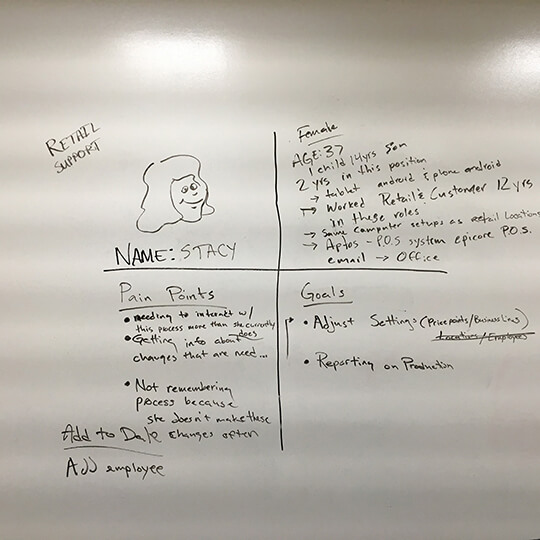 RETAIL
SUPPORT
NAME: STACY
Female
AGE: 37
1 child 14yrs Son
2 yrs in this position
→ tablet android & phone android
→ Worked Retail & Custonder 12 yrs
in these roles
→ Same Computer setups as retail locations
→ Aptos - P.O.S system epicore P.O.S.
email → Office
Pain Points
• needing to internet w/
this process more than she currently
does
• Getting info about
changes that are need...
• Not remembering
process because
she doesn't make these
changes often
Add to Dale
Add employee
Goals
• Adjust Settings (Price points/Business Lines)
Locations/Employees
• Reporting on Production